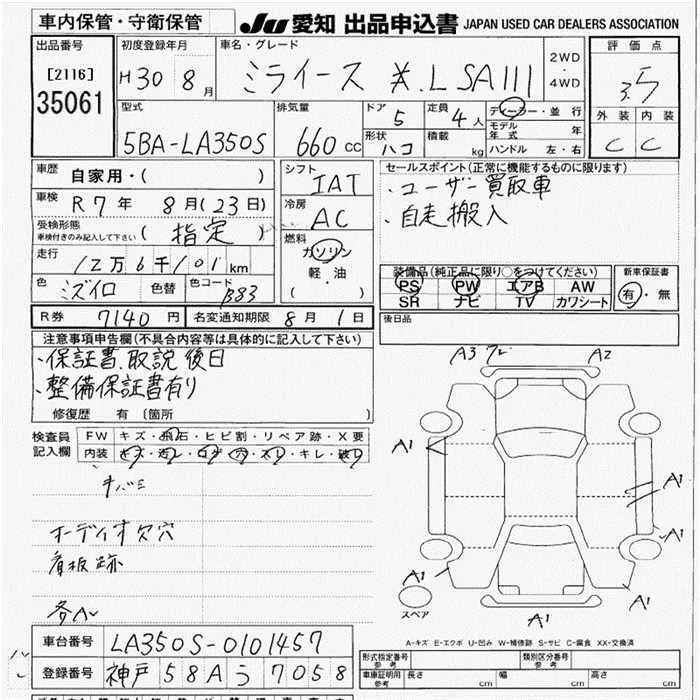 車内保管・守衛保管
JU 愛知 出品申込書 JAPAN USED CAR DEALERS ASSOCIATION
出品番号
[2116]
35061
初度登録年月
H30 8月
車名・グレード
ミライース L SAIII
2WD
・
4WD
評価点
3.5
外装 内装
C C
型式
5BA-LA350S
排気量
660 CC
ドア
5
定員
4人
形状
ハコ
積載
kg
ディーラー・並行
モデル年式 年
ハンドル 左・右
車歴 自家用・( )
車検 R7年 8月(23日)
受検形態
車検付きのみ記入して下さい ( 指定 )
走行
12万6千101km
色 ミズイロ 色替 色コード B83
シフト
IAT
冷房
AC
燃料
ガソリン
軽・油
( )
セールスポイント(正常に機能するものに限ります)
・ユーザー買取車
・自走搬入
装備品(純正品に限り○をつけてください)
PS PW エアB AW
SR ナビ TV カワシート
新車保証書
有・無
R券 7140円 名変通知期限 8月1日
後日品
注意事項申告欄(不具合内容等は具体的に記入して下さい)
・保証書、取説 後日
・整備保証書有り
修復歴 有 〔箇所 〕
検査員記入欄
FW キズ・飛石・ヒビ割・リペア跡・X要
内装 キズ・汚レ・コゲ・穴・スレ・キレ・破レ
キバミ
オーディオ欠穴
看板跡
各A
A3 A2
A1
A1
A1
A1
A1
A1
スペア
A-キズ E-エクボ U-凹み W-補修跡 S-サビ C-腐食 XX-交換済
車台番号 LA350S-0101457
登録番号 神戸 58A う 7058
形式指定番号
参考
類別区分番号
参考
車庫証明用
参考
長さ cm 幅 cm 高さ cm